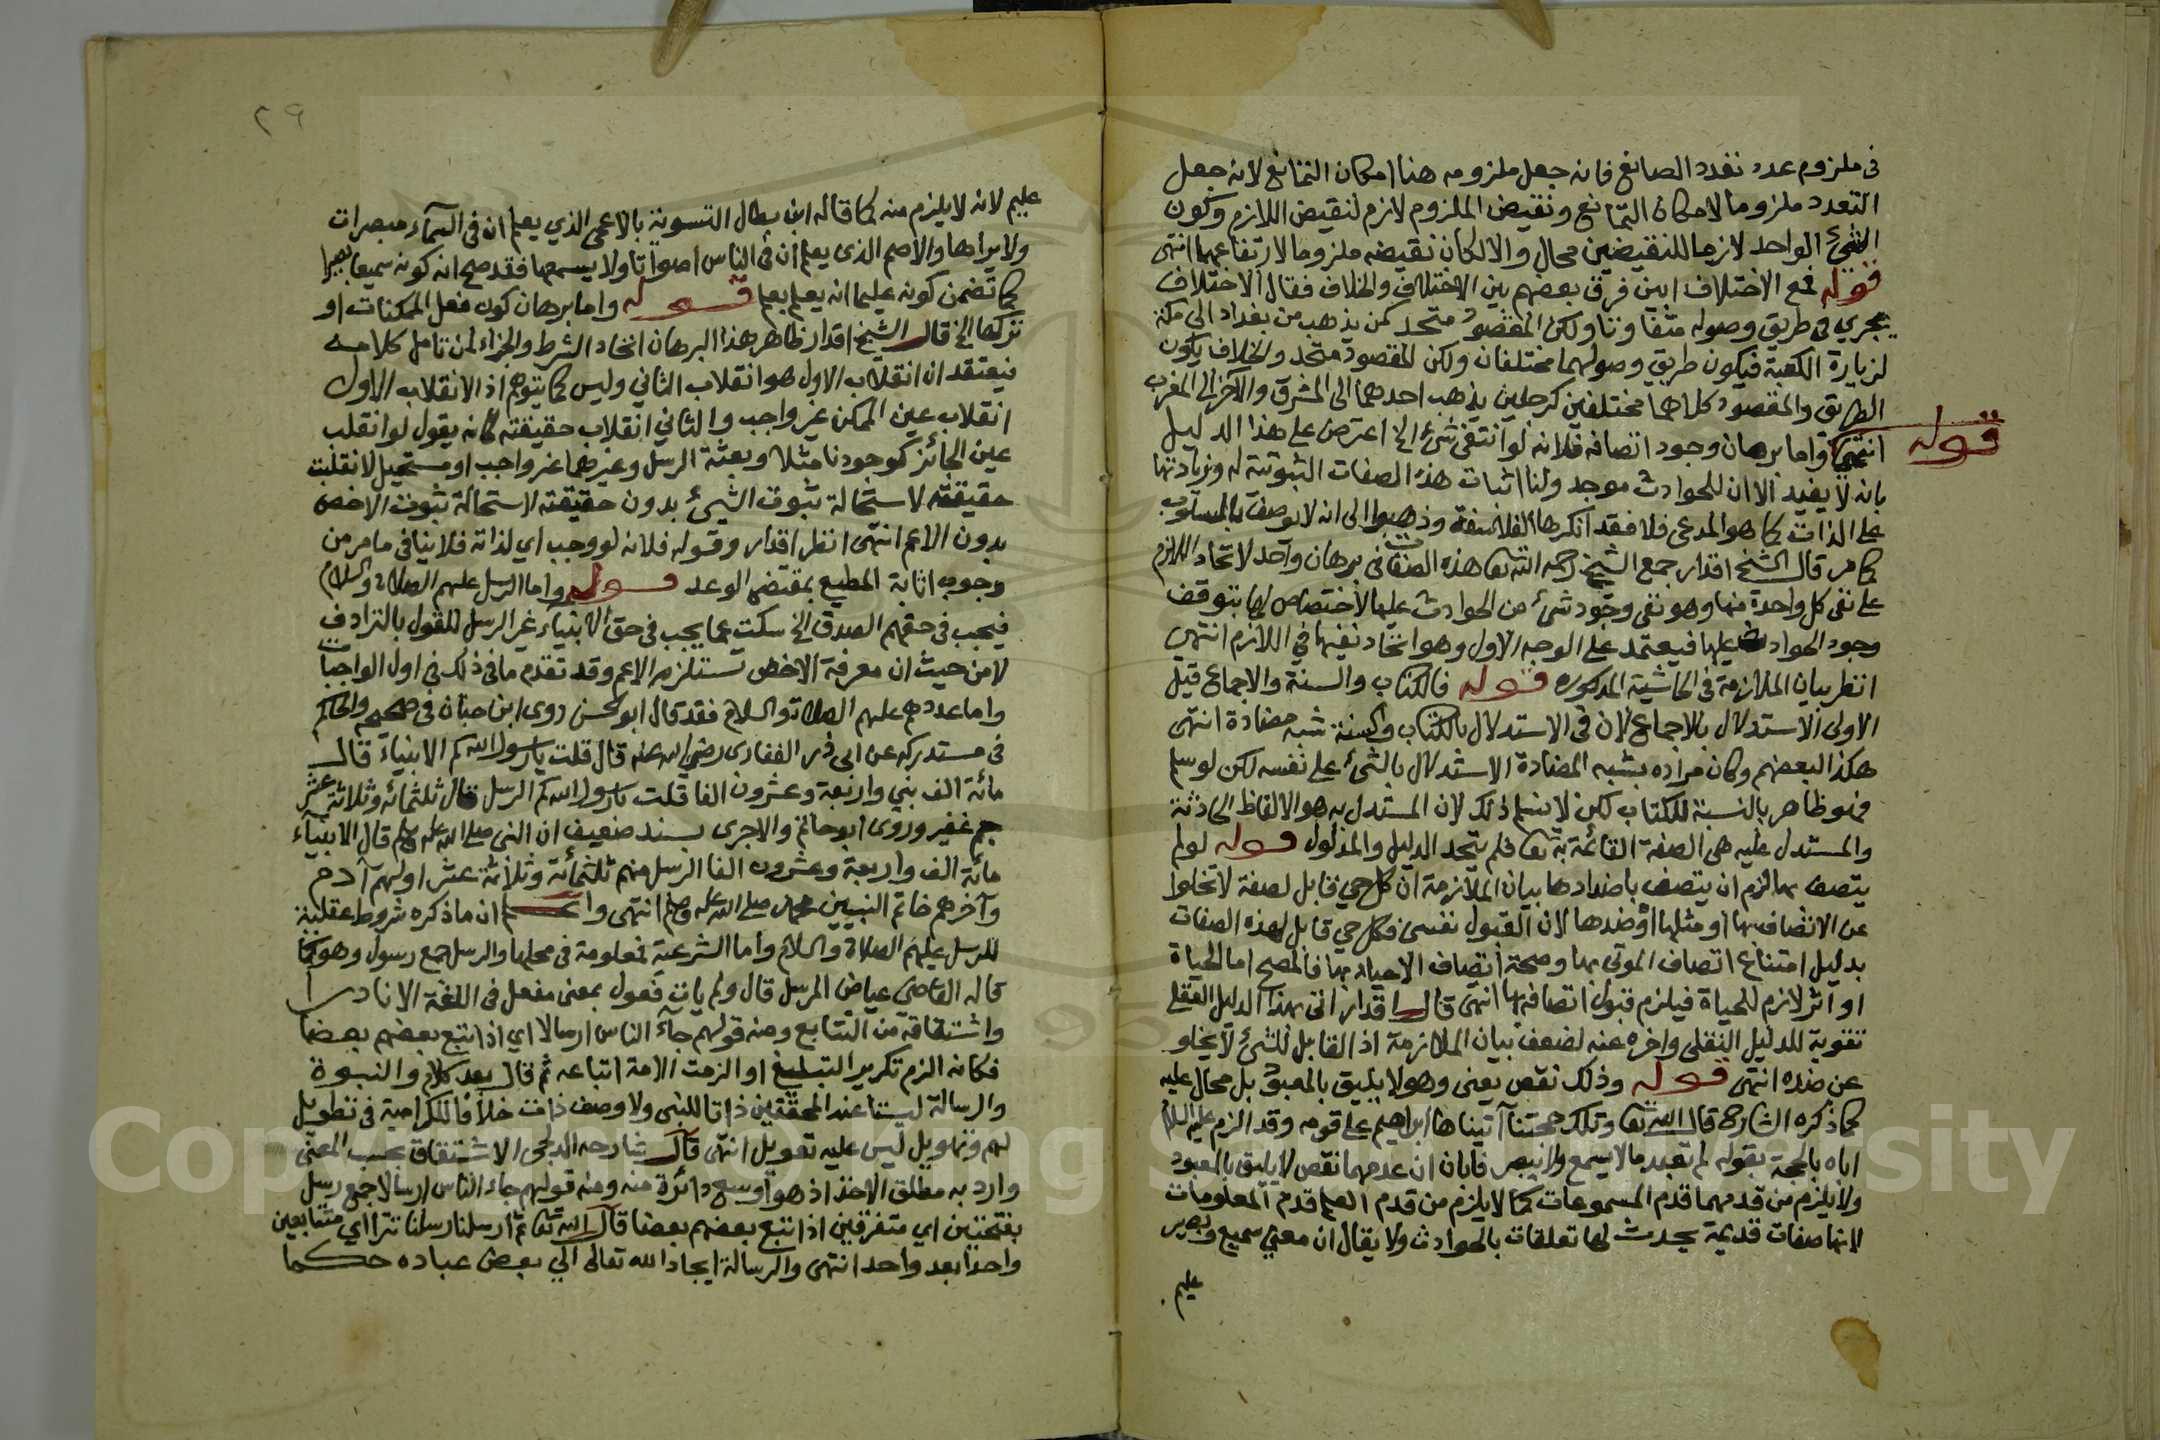 في ملزوم عدد تعدد الصانع فانه جعل ملزومه هنا امكان التمانع لانه جعل
التعدد ملزوما لامكان التمانع ونقيض الملزوم لازم لنقيض اللازم وكون
الشئ الواحد لازما للنقيضين محال والا لكان نقيضه ملزوما لارتفاعهما انتهى
قوله فمع الاختلاف ابين فرق بعضهم بين الاختلاف والخلاف فقال الاختلاف
يجري في طريق وصوله متفاوتا ولكن المقصود متحد كمن يذهب من بغداد الى مكة
لزيارة الكعبة فيكون طريق وصولهما مختلفان ولكن المقصود متحد والخلاف يكون
الطريق والمقصود كلاهما مختلفين كرجلين يذهب احدهما الى المشرق والآخر الى المغرب
انتهى واما برهان وجود اتصافه فلانه لو انتفى شئ الخ اعترض على هذا الدليل
قوله
بانه لا يفيد الا ان للحوادث موجد ولنا اثبات هذه الصفات الثبوتية له وزيادتها
على الذات كما هو المدعى فلا فقد انكرها الفلاسفة وذهبوا الى انه لا يوصف بالسلوب
كما مر قال الشيخ اقدار جمع الشيخ رحمه الله تعا هذه الصفات في برهان واحد لاتحاد اللازم
على نفى كل واحدة منها وهو نفى وجود شئ من الحوادث عليها لاختصاص لها بتوقف
وجود الحوادث عليها فيعتمد على الوجه الاول وهو اتحاد نفيها في اللازم انتهى
انظر بيان الملازمة في الحاشية المذكوره قوله فالكتاب والسنة والاجماع قيل
الاولى الاستدلال بالاجماع لان في الاستدلال بالكتاب والسنة شبه مضادة انتهى
هكذا لبعضهم وكان مراده بشبه المضادة الاستدلال بالشئ على نفسه لكن لو سلم
فهو ظاهر بالنسبة للكتاب لكن لا نسلم ذلك لان المستدل به هو الالفاظ الحادثة
والمستدل عليه هى الصفة القائمة به تعا فلم يتحد الدليل والمدلول قوله لو لم
يتصف بها لزم ان يتصف باضدادها بيان الملازمة ان كل حي قابل لصفة لا يخلوا
عن الاتصاف بها او مثلها او ضدها لان القبول نفسى فكل حي قابل لهذه الصفات
بدليل امتناع اتصاف الموتى بها وصحة اتصاف الاحياء بها فالمصح اما الحياة
او اثر لازم للحياة فيلزم قبول اتصافه بها انتهى قال اقدار اتى بهذا الدليل العقلي
تقوية للدليل النقلى واخره عنه لضعف بيان الملازمة اذ القابل للشئ لا يخلو
عن ضده انتهى قوله وذلك نقص يعنى وهو لا يليق بالمعبود بل محال عليه
كما ذكره الشارح قال الله تعا وتلك حجتنا آتيناها ابراهيم على قومه وقد الزم عليه السلام
اباه بالحجة بقوله لم تعبد ما لا يسمع ولا يبصر فابان ان عدمهما نقص لا يليق بالمعبود
ولا يلزم من قدمهما قدم المسموعات كما لا يلزم من قدم العلم قدم المعلومات
لانها صفات قديمة يحدث لها تعلقات بالحوادث ولا يقال ان معنى سميع وبصير
عليم
٢٩
عليم لانه لا يلزم منه كما قاله ابن بطال التسوية بالاعمى الذي يعلم ان في السماء مبصرات
ولا يراها والاصم الذي يعلم ان في الناس اصواتا ولا يسمعها فقد صح انه كونه سميعا بصيرا
كما تضمن كونه عليما انه يعلم بعلم قوله واما برهان كون فعل الممكنات او
تركها الخ قال الشيخ اقدار ظاهر هذا البرهان اتحاد الشرط والجزاء لمن تامل كلامه
فيعتقد ان انقلاب الاول هو انقلاب الثاني وليس كما يتوهم اذ الانقلاب الاول
انقلاب عين الممكن غير واجب والثاني انقلاب حقيقته كانه يقول لو انقلب
عين الجائز كوجودنا مثلا وبعثة الرسل وغيرهما غير واجب او مستحيل لانقلبت
حقيقته لاستحالة ثبوت الشيئ بدون حقيقته لاستحالة ثبوت الاخص
بدون الاعم انتهى انظر اقدار وقوله فلانه لو وجب اي لذاته فلا ينافي ما مر من
وجوب اثابة المطيع بمقتضى الوعد قوله واما الرسل عليهم الصلاة والسلام
فيجب في حقهم الصدق الخ سكت عما يجب في حق الانبياء غير الرسل للقول بالترادف
لا من حيث ان معرفة الاخص تستلزم الاعم وقد تقدم ما في ذلك في اول الواجبات
واما عددهم عليهم الصلاة والسلام فقد قال ابو الحسن روى ابن حبان في صحيحه والحاكم
في مستدركه عن ابى ذر الغفارى رضى الله عنه قال قلت يا رسول الله كم الانبياء قال
مائة الف نبي واربعة وعشرون الفا قلت يا رسول الله كم الرسل قال ثلثمائة وثلاثة عشر
جم غفير وروى ابو حاتم والاجرى بسند ضعيف ان النبى صلى الله عليه وسلم قال الانبياء
مائة الف واربعة وعشرون الفا الرسل منهم ثلثمائة وثلاثة عشر اولهم آدم
وآخرهم خاتم النبيين محمد صلى الله عليه وسلم انتهى واعلم ان ما ذكره شروط عقلية
للرسل عليهم الصلاة والسلام واما الشرعية فمعلومة في محلها والرسل جمع رسول وهو كما
قاله القاضى عياض المرسل قال ولم يات فعول بمعنى مفعل في اللغة الا نادرا
واشتقاقه من التتابع ومنه قولهم جاء الناس ارسالا اي اذا تبع بعضهم بعضا
فكانه الزم تكرير التبليغ او الزمت الامة اتباعه ثم قال بعد كلام والنبوة
والرسالة ليستا عند المحققين ذاتا للنبى ولا وصف ذات خلافا للكرامية في تطويل
لهم وتهويل ليس عليه تعويل انتهى قال شارحه الدلجى الاشتقاق بحسب المعنى
وارد به مطلق الاخذ اذ هو اوسع دائرة منه ومنه قولهم جاء الناس ارسالا جمع رسل
بفتحتين اي متفرقين اذا تبع بعضهم بعضا قال الله تعا ثم ارسلنا رسلنا تترا اي متتابعين
واحدا بعد واحد انتهى والرسالة ايجاد الله تعالى الي بعض عباده حكما